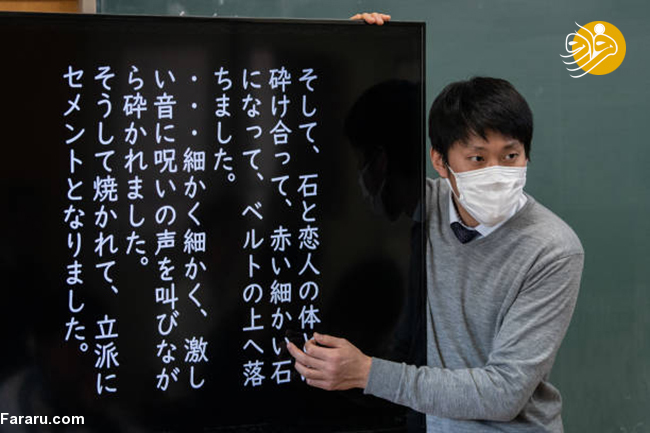 そして、石と恋人の体
砕け合って、赤い細かい石
になって、ベルトの上へ落
ちました。
・・・細かく細かく、激し
い音に呪いの声を叫びなが
ら砕かれました。
そうして焼かれて、立派に
セメントとなりました。
Fararu.com